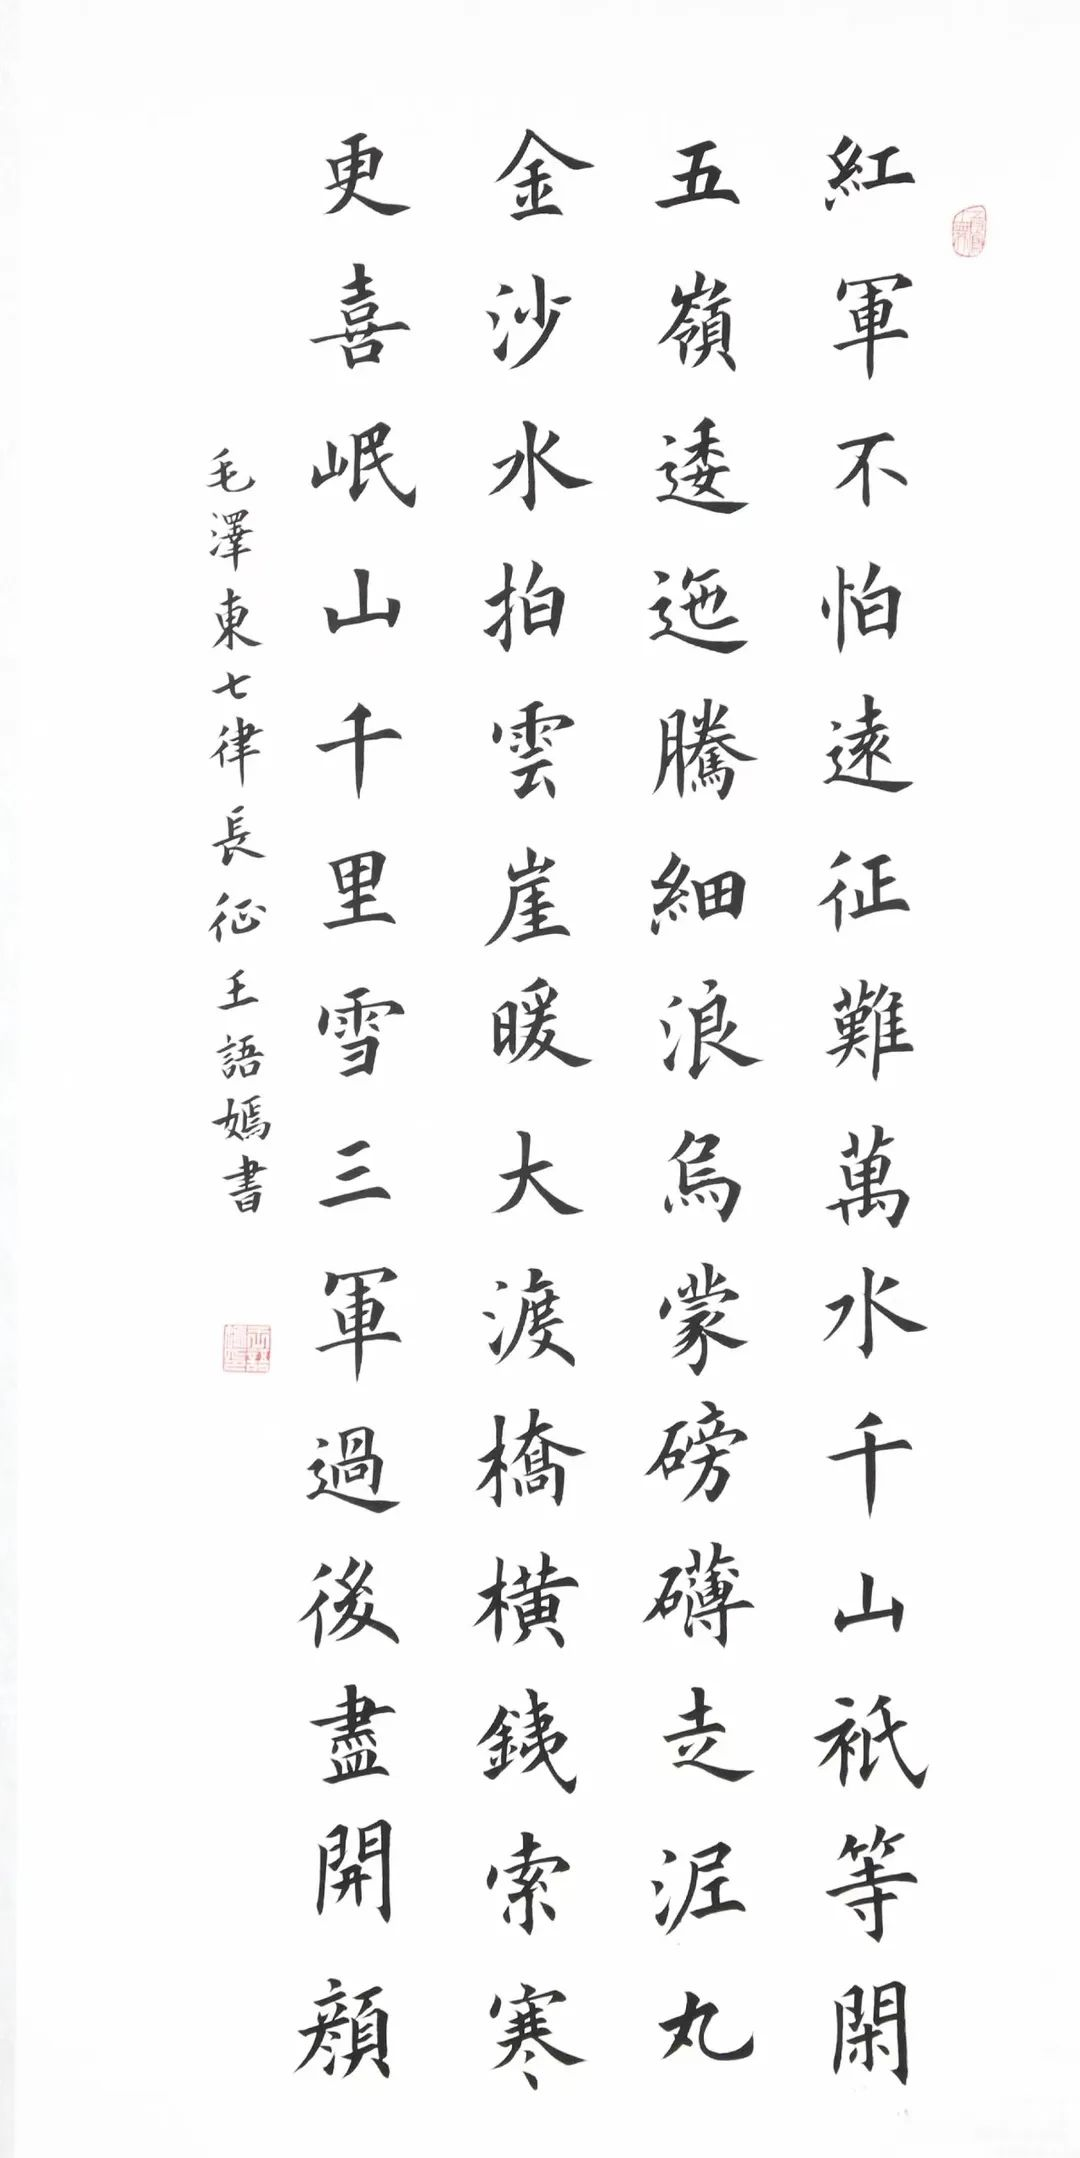 紅軍不怕遠征難萬水千山衹等閑
五嶺逶迤騰細浪烏蒙磅礴走泥丸
金沙水拍雲崖暖大渡橋橫鐵索寒
更喜岷山千里雪三軍過後盡開顏
毛澤東七律長征王語嫣書